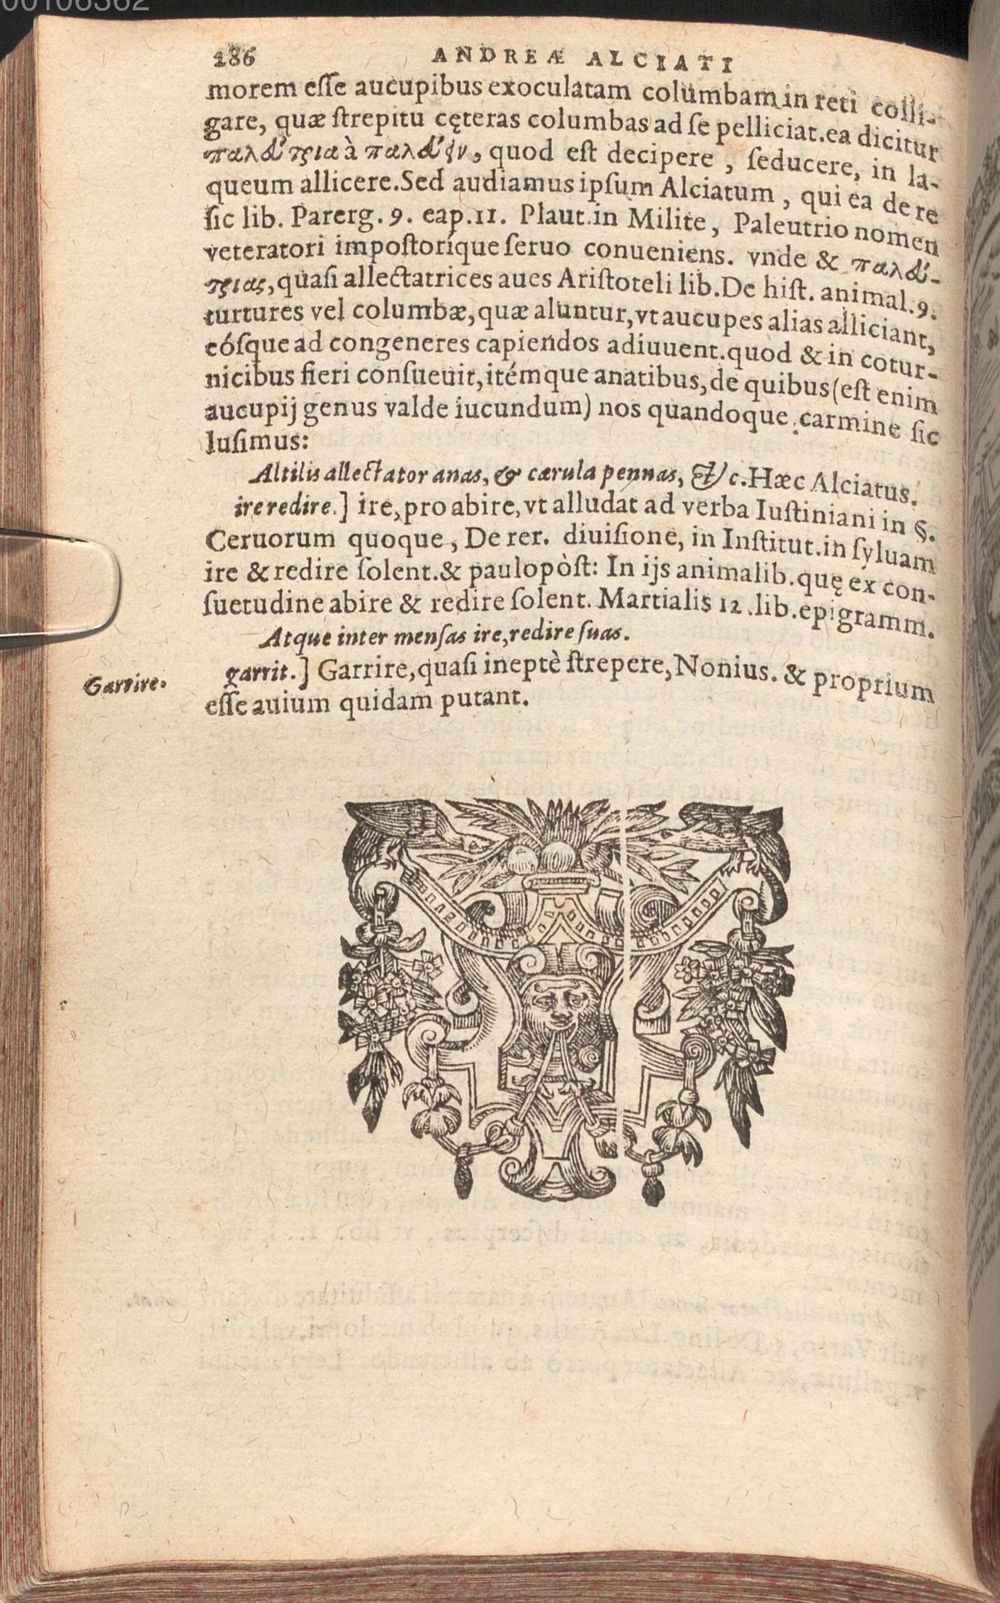 00106362
286 ANDREÆ ALCIATI
morem esse aucupibus exoculatam columbam in reti colli-
gare, quæ strepitu cęteras columbas ad se pelliciat. ea dicitur
παλεύτρια à παλεύειν, quod est decipere, seducere, in la-
queum allicere. Sed audiamus ipsum Alciatum, qui ea de re
sic lib. Parerg. 9. cap. 11. Plaut. in Milite, Paleutrio nomen
veteratori impostorique seruo conueniens. vnde & παλεύ-
τριας, quasi allectatrices aues Aristoteli lib. De hist. animal. 9.
turtures vel columbæ, quæ aluntur, vt aucupes alias alliciant,
eósque ad congeneres capiendos adiuuent. quod & in cotur-
nicibus fieri consueuit, itémque anatibus, de quibus (est enim
aucupij genus valde iucundum) nos quandoque carmine sic
lusimus:
Altilis allectator anas, & cærula pennas, &c. Hæc Alciatus.
ire redire.] ire, pro abire, vt alludat ad verba Iustiniani in §.
Ceruorum quoque, De rer. diuisione, in Institut. in syluam
ire & redire solent. & paulopòst: In ijs animalib. quę ex con-
suetudine abire & redire solent. Martialis 12. lib. epigramm.
Atque inter mensas ire, redire suas.
Garrire. garrit.] Garrire, quasi ineptè strepere, Nonius. & proprium
esse auium quidam putant.